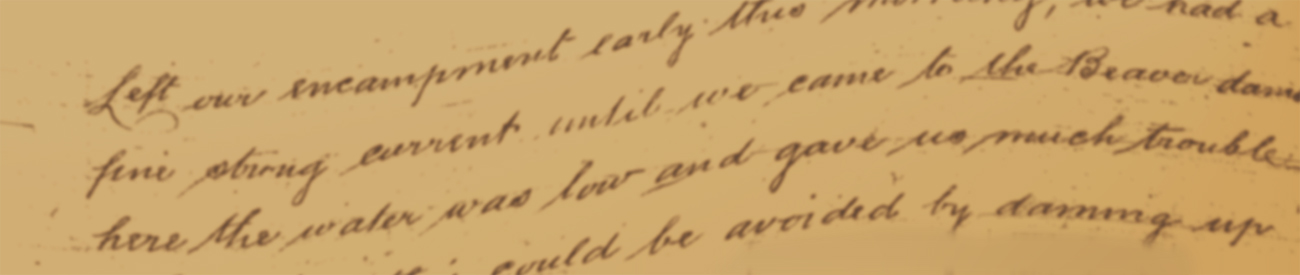 Left our encampment early this morning, we had a
fine strong current until we came to the Beaver dams
here the water was low and gave us much trouble
could be avoided by damming up